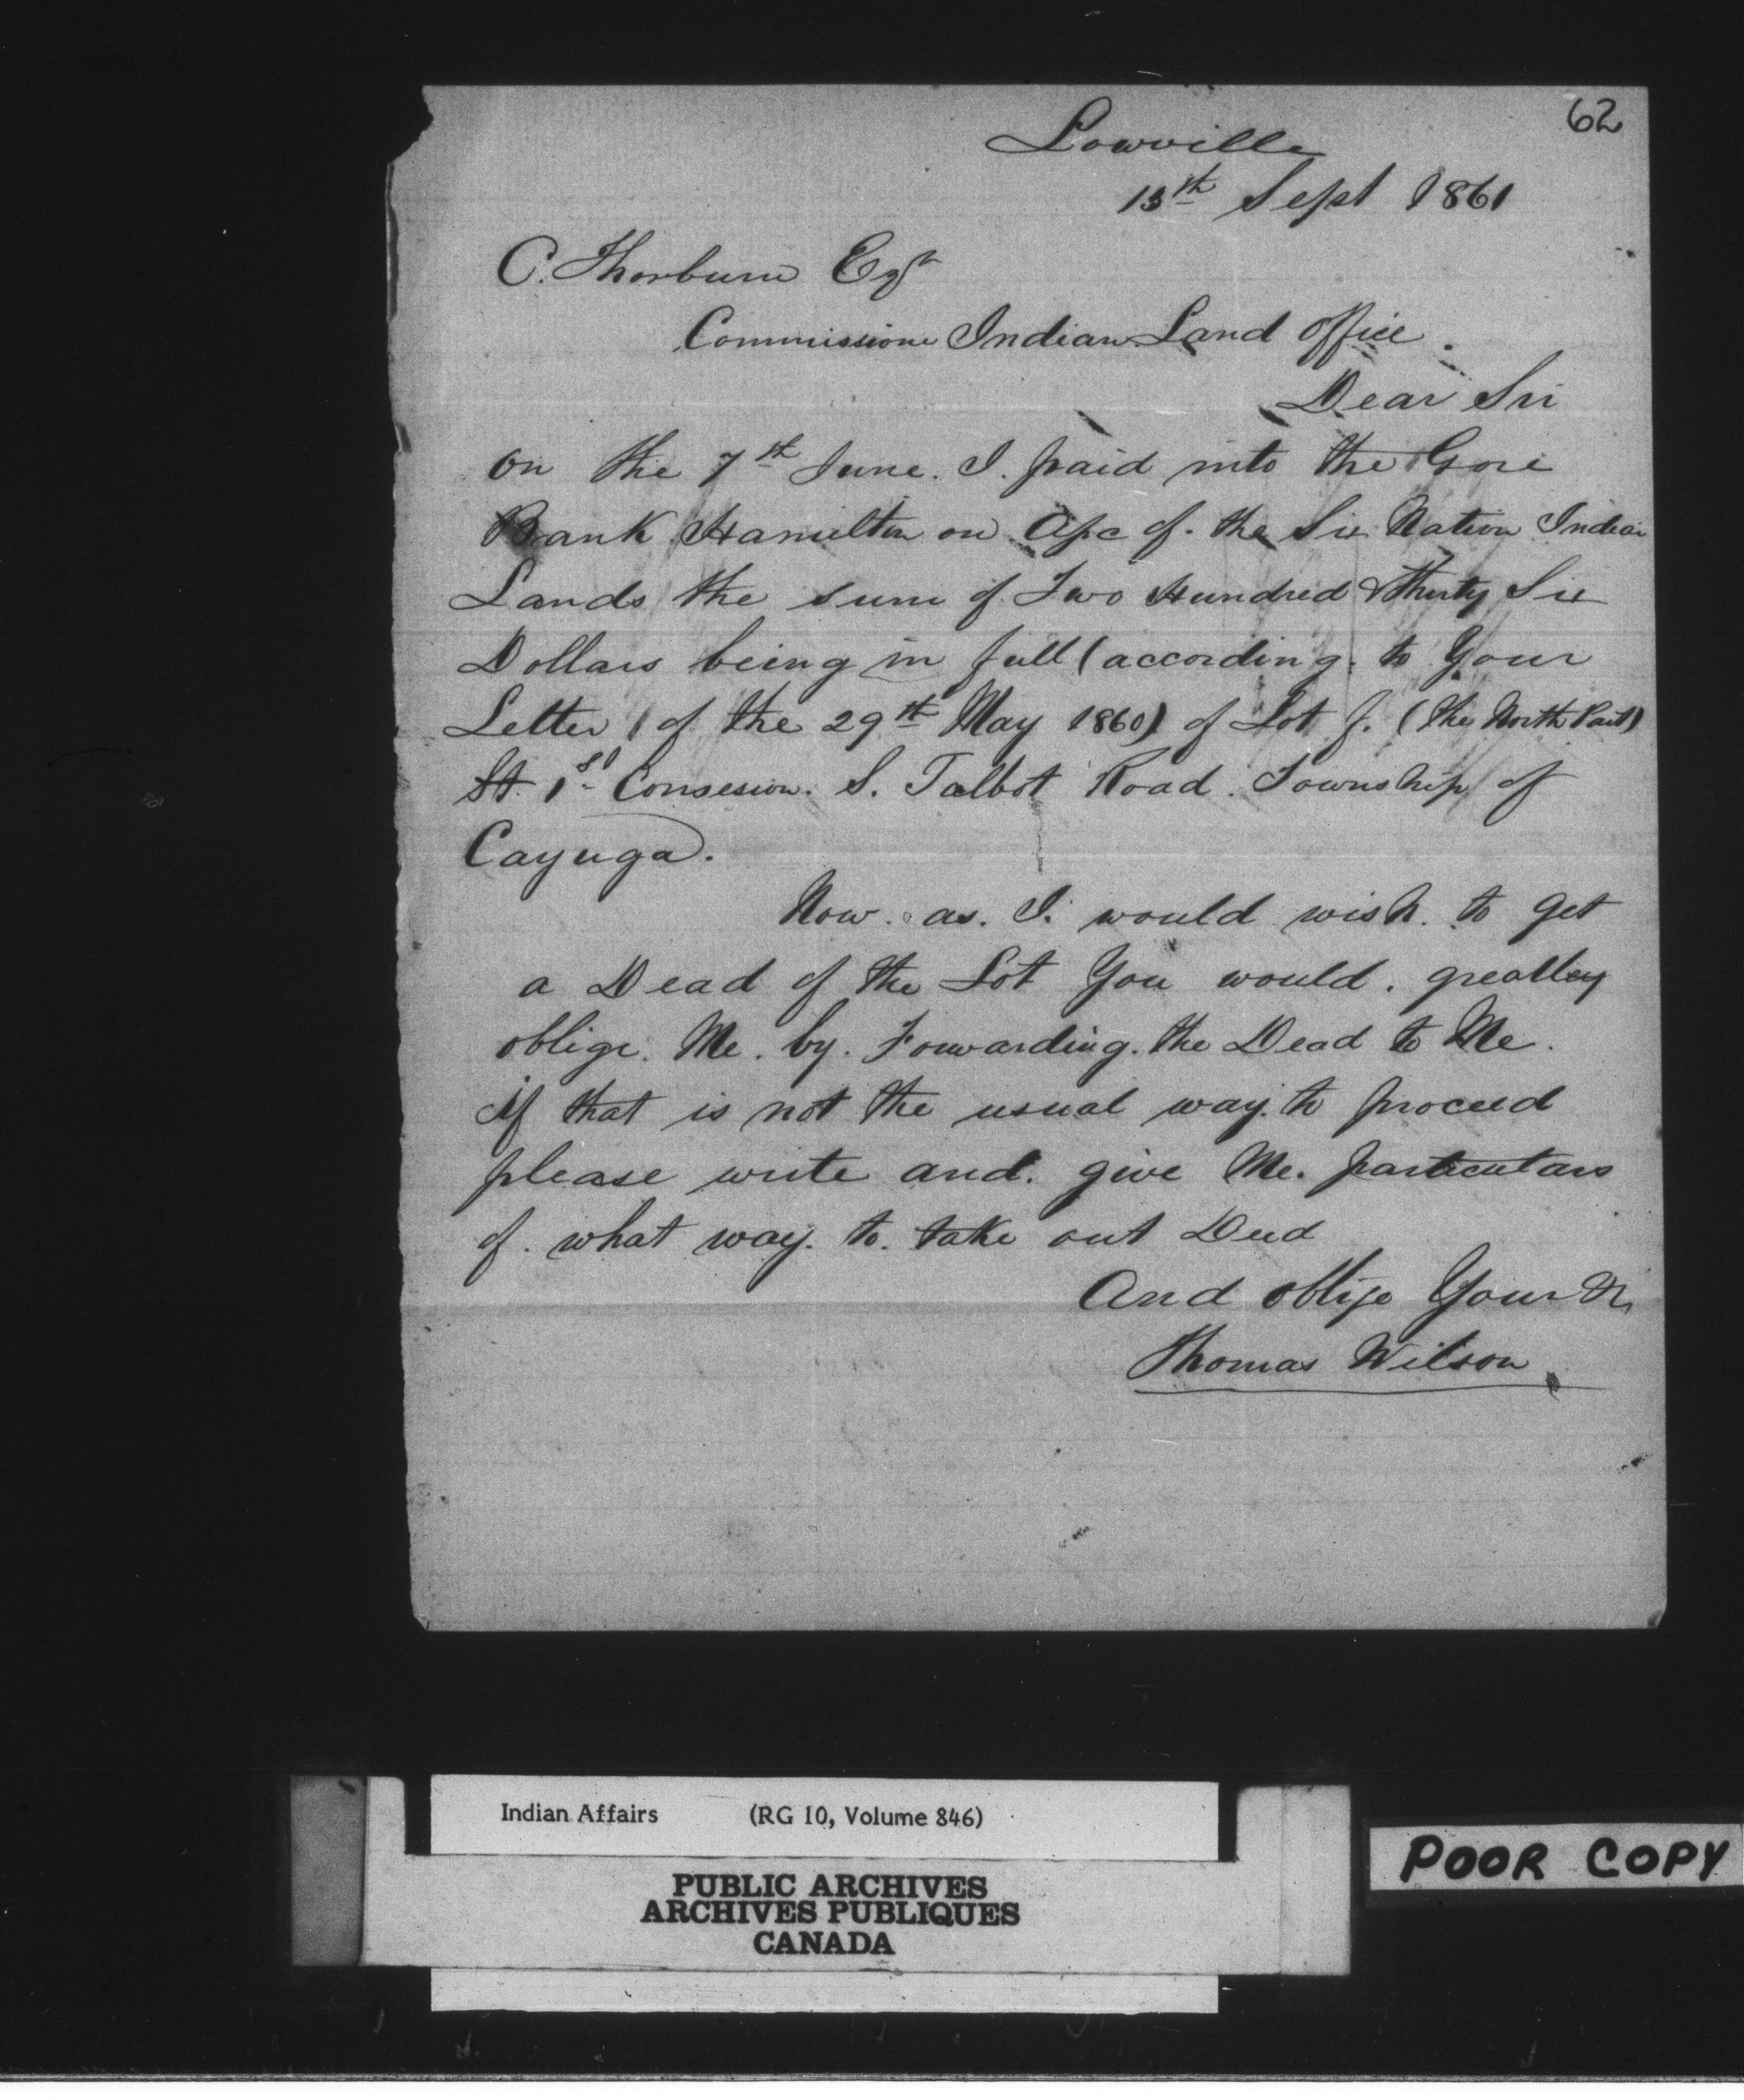 62
Lowville
13th Sept 1861
C. Thorburn Esqr
Commissione Indian Land office.
Dear Sir
on the 7th June. I. paid into the Gore
Bank Hamilton on A/c of. the Six Nation Indian
Lands the sum of Two Hundred & Thirty Six
Dollars being in full (according. to Your
Letter of the 29th May 1860) of Lot (the North Part)
1st Consesion. S. Talbot Road. Township of
Cayuga.
Now. as. I. would wish. to get
a Dead of the Lot You would. greatley
oblige. Me. by. Forwarding. the Dead to Me.
if that is not the usual way. to proceed
please write and. give Me. particulars
of. what way. to. take out Deed
And oblige Your
Thomas Wilson
Indian Affairs (RG 10, Volume 846)
PUBLIC ARCHIVES
ARCHIVES PUBLIQUES
CANADA
POOR COPY